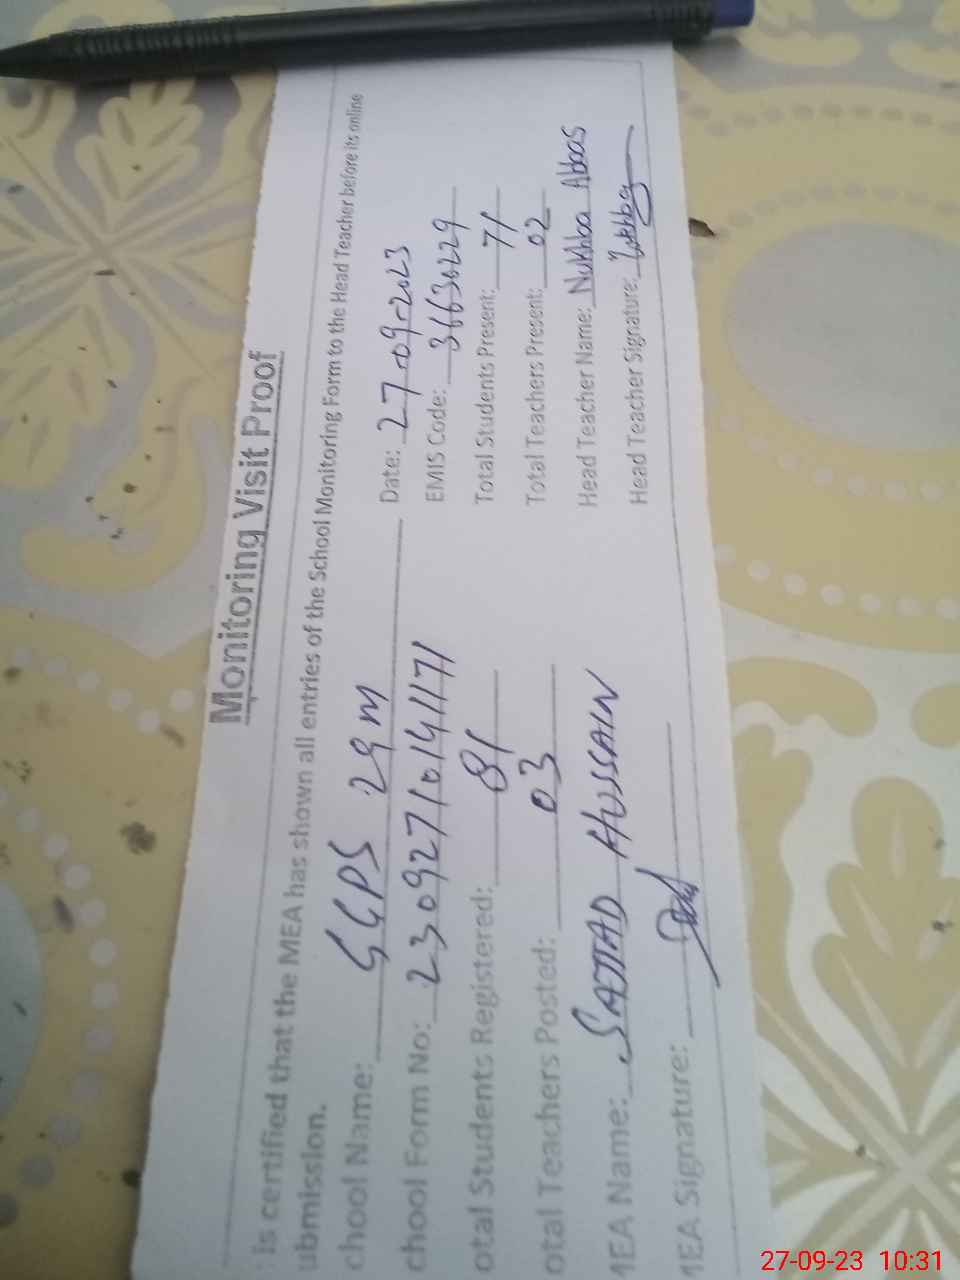 Monitoring Visit Proof
Is certified that the MEA has shown all entries of the School Monitoring Form to the Head Teacher before its online
ubmission.
chool Name: GGPS 29 M Date: 27-09-2023
chool Form No: 23092710141171 EMIS Code: 36630229
otal Students Registered: 81 Total Students Present: 71
otal Teachers Posted: 03 Total Teachers Present: 02
1EA Name: SAJJAD HUSSAIN Head Teacher Name: Nukhba Abbas
1EA Signature: Head Teacher Signature: Nukhba
27-09-23 10:31